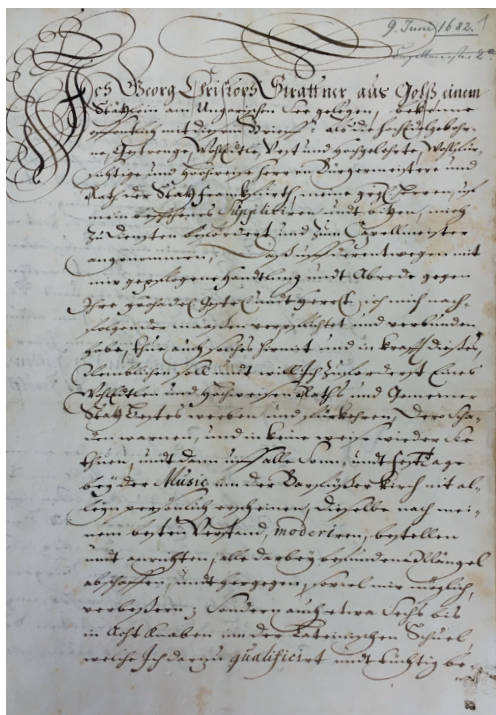 9. Juni 1682. 1
Capellmeister
Ich Georg Christoph Strattner, aus Golß einem
Stättlein am Ungarischen See gelegen, bekenne
offentlich mit diesem Brieff, als die hochEdelgebohr-
ne, Gestrenge, WohlEdle, Vest und hochgelehrte, Wohlfür-
sichtige und Hochweise herren Burgermeistere und
Rath der Statt Franckfurth, meine Herren, uf
mein beschehenes Supplicieren undt bitten, mich
zu Diensten befördert und zum Capellmeister
angenommen, Daß uff derentwegen mit
mir gepflogene Handtlung undt Abrede gegen
Ihre undt Herrl. ich mich nach-
folgender maaßen verpflichtet und verbunden
habe, thue auch solches hiermit und in krafft dießes,
Nemblichen, soll undt will Ich zuforderst Eines
WohlEdlen und Hochweisen Raths und Gemeiner
Statt bestes werben und fürkehren, Dero Scha-
den warnen, und in keine weise wieder Sie
thuen, undt dann uff alle Sonn- undt Festtage
bey der Music in der Barfüßer kirch mit al-
lein persönlich erscheinen, dieselbe nach mei-
nem besten Verstand, moderiren, bestellen
undt anrichten, alle darbey befundene Mängel
abschaffen, undt hergegen, soviel mir möglich,
verbeßern; Sondern auch etwa Sechs bis
in Acht Knaben in der Lateinischen Schuel
welche Ich darzu qualificirt undt tüchtig be-